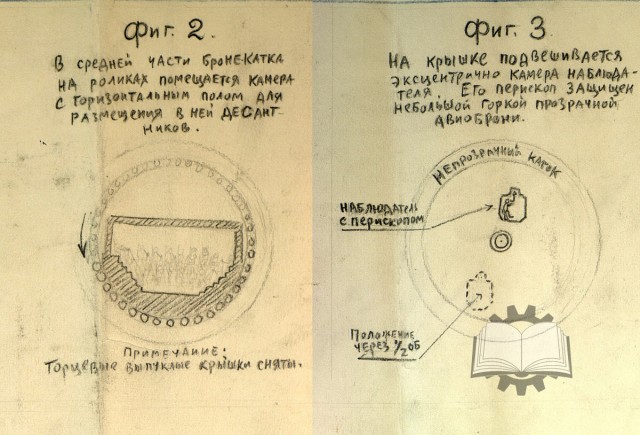 Фиг. 2
В средней части броне-катка
на роликах помещается камера
с горизонтальным полом для
размещения в ней десант-
ников.
Примечание:
Торцевые выпуклые крышки сняты.
Фиг. 3.
На крышке подвешивается
эксцентрично камера наблюда-
теля. Его перископ защищен
небольшой горкой прозрачной
авиоброни.
Непрозрачный каток
Наблюдатель
с перископом
Положение
через 1/2 об